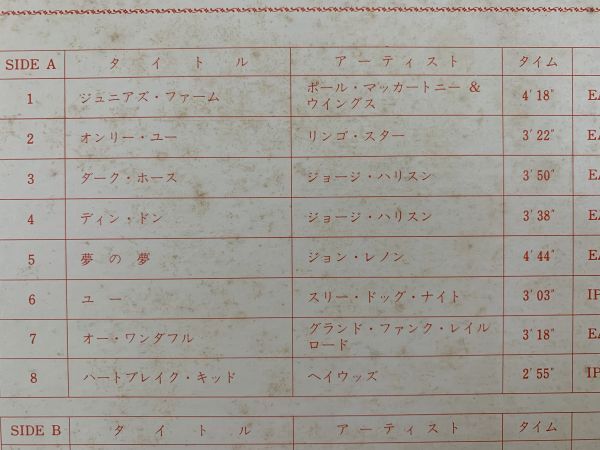 SIDE A タイトル アーティスト タイム
1 ジュニアズ・ファーム ポール・マッカートニー & ウイングス 4′18″ EA
2 オンリー・ユー リンゴ・スター 3′22″ EA
3 ダーク・ホース ジョージ・ハリスン 3′50″ EA
4 ディン・ドン ジョージ・ハリスン 3′38″ EA
5 夢の夢 ジョン・レノン 4′44″ EA
6 ユー スリー・ドッグ・ナイト 3′03″ IP
7 オー・ワンダフル グランド・ファンク・レイルロード 3′18″ EA
8 ハートブレイク・キッド ヘイウッズ 2′55″ IP
SIDE B タイトル アーティスト タイム